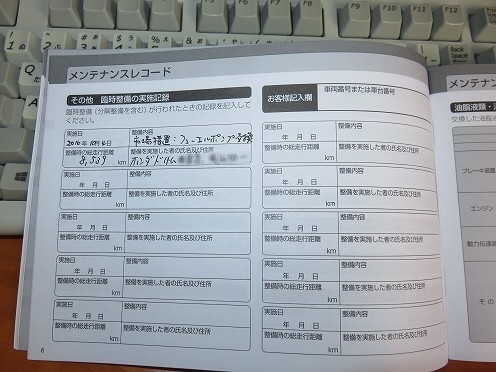 メンテナンスレコード
その他 臨時整備の実施記録
臨時整備(分解整備を含む)が行われたときの記録を記入して
ください。
実施日 整備内容
2010年10月 日 市場措置:フューエルポンプ交換
整備時の総走行距離 整備を実施した者の氏名及び住所
8,539 km ホンダドリーム
実施日 整備内容
年 月 日
整備時の総走行距離 整備を実施した者の氏名及び住所
km
実施日 整備内容
年 月 日
整備時の総走行距離 整備を実施した者の氏名及び住所
km
実施日 整備内容
年 月 日
整備時の総走行距離 整備を実施した者の氏名及び住所
km
実施日 整備内容
年 月 日
整備時の総走行距離 整備を実施した者の氏名及び住所
km
6
お客様記入欄 車両番号または車台番号
実施日 整備内容
年 月 日
整備時の総走行距離 整備を実施した者の氏名及び住所
km
実施日 整備内容
年 月 日
整備時の総走行距離 整備を実施した者の氏名及び住所
km
実施日 整備内容
年 月 日
整備時の総走行距離 整備を実施した者の氏名及び住所
km
実施日 整備内容
年 月 日
整備時の総走行距離 整備を実施した者の氏名及び住所
km
実施日 整備内容
年 月 日
整備時の総走行距離 整備を実施した者の氏名及び住所
km
メンテナン
油脂液類・
交換した油脂液
ブレーキ装置
エンジン
動力伝達装
その
Back
Space